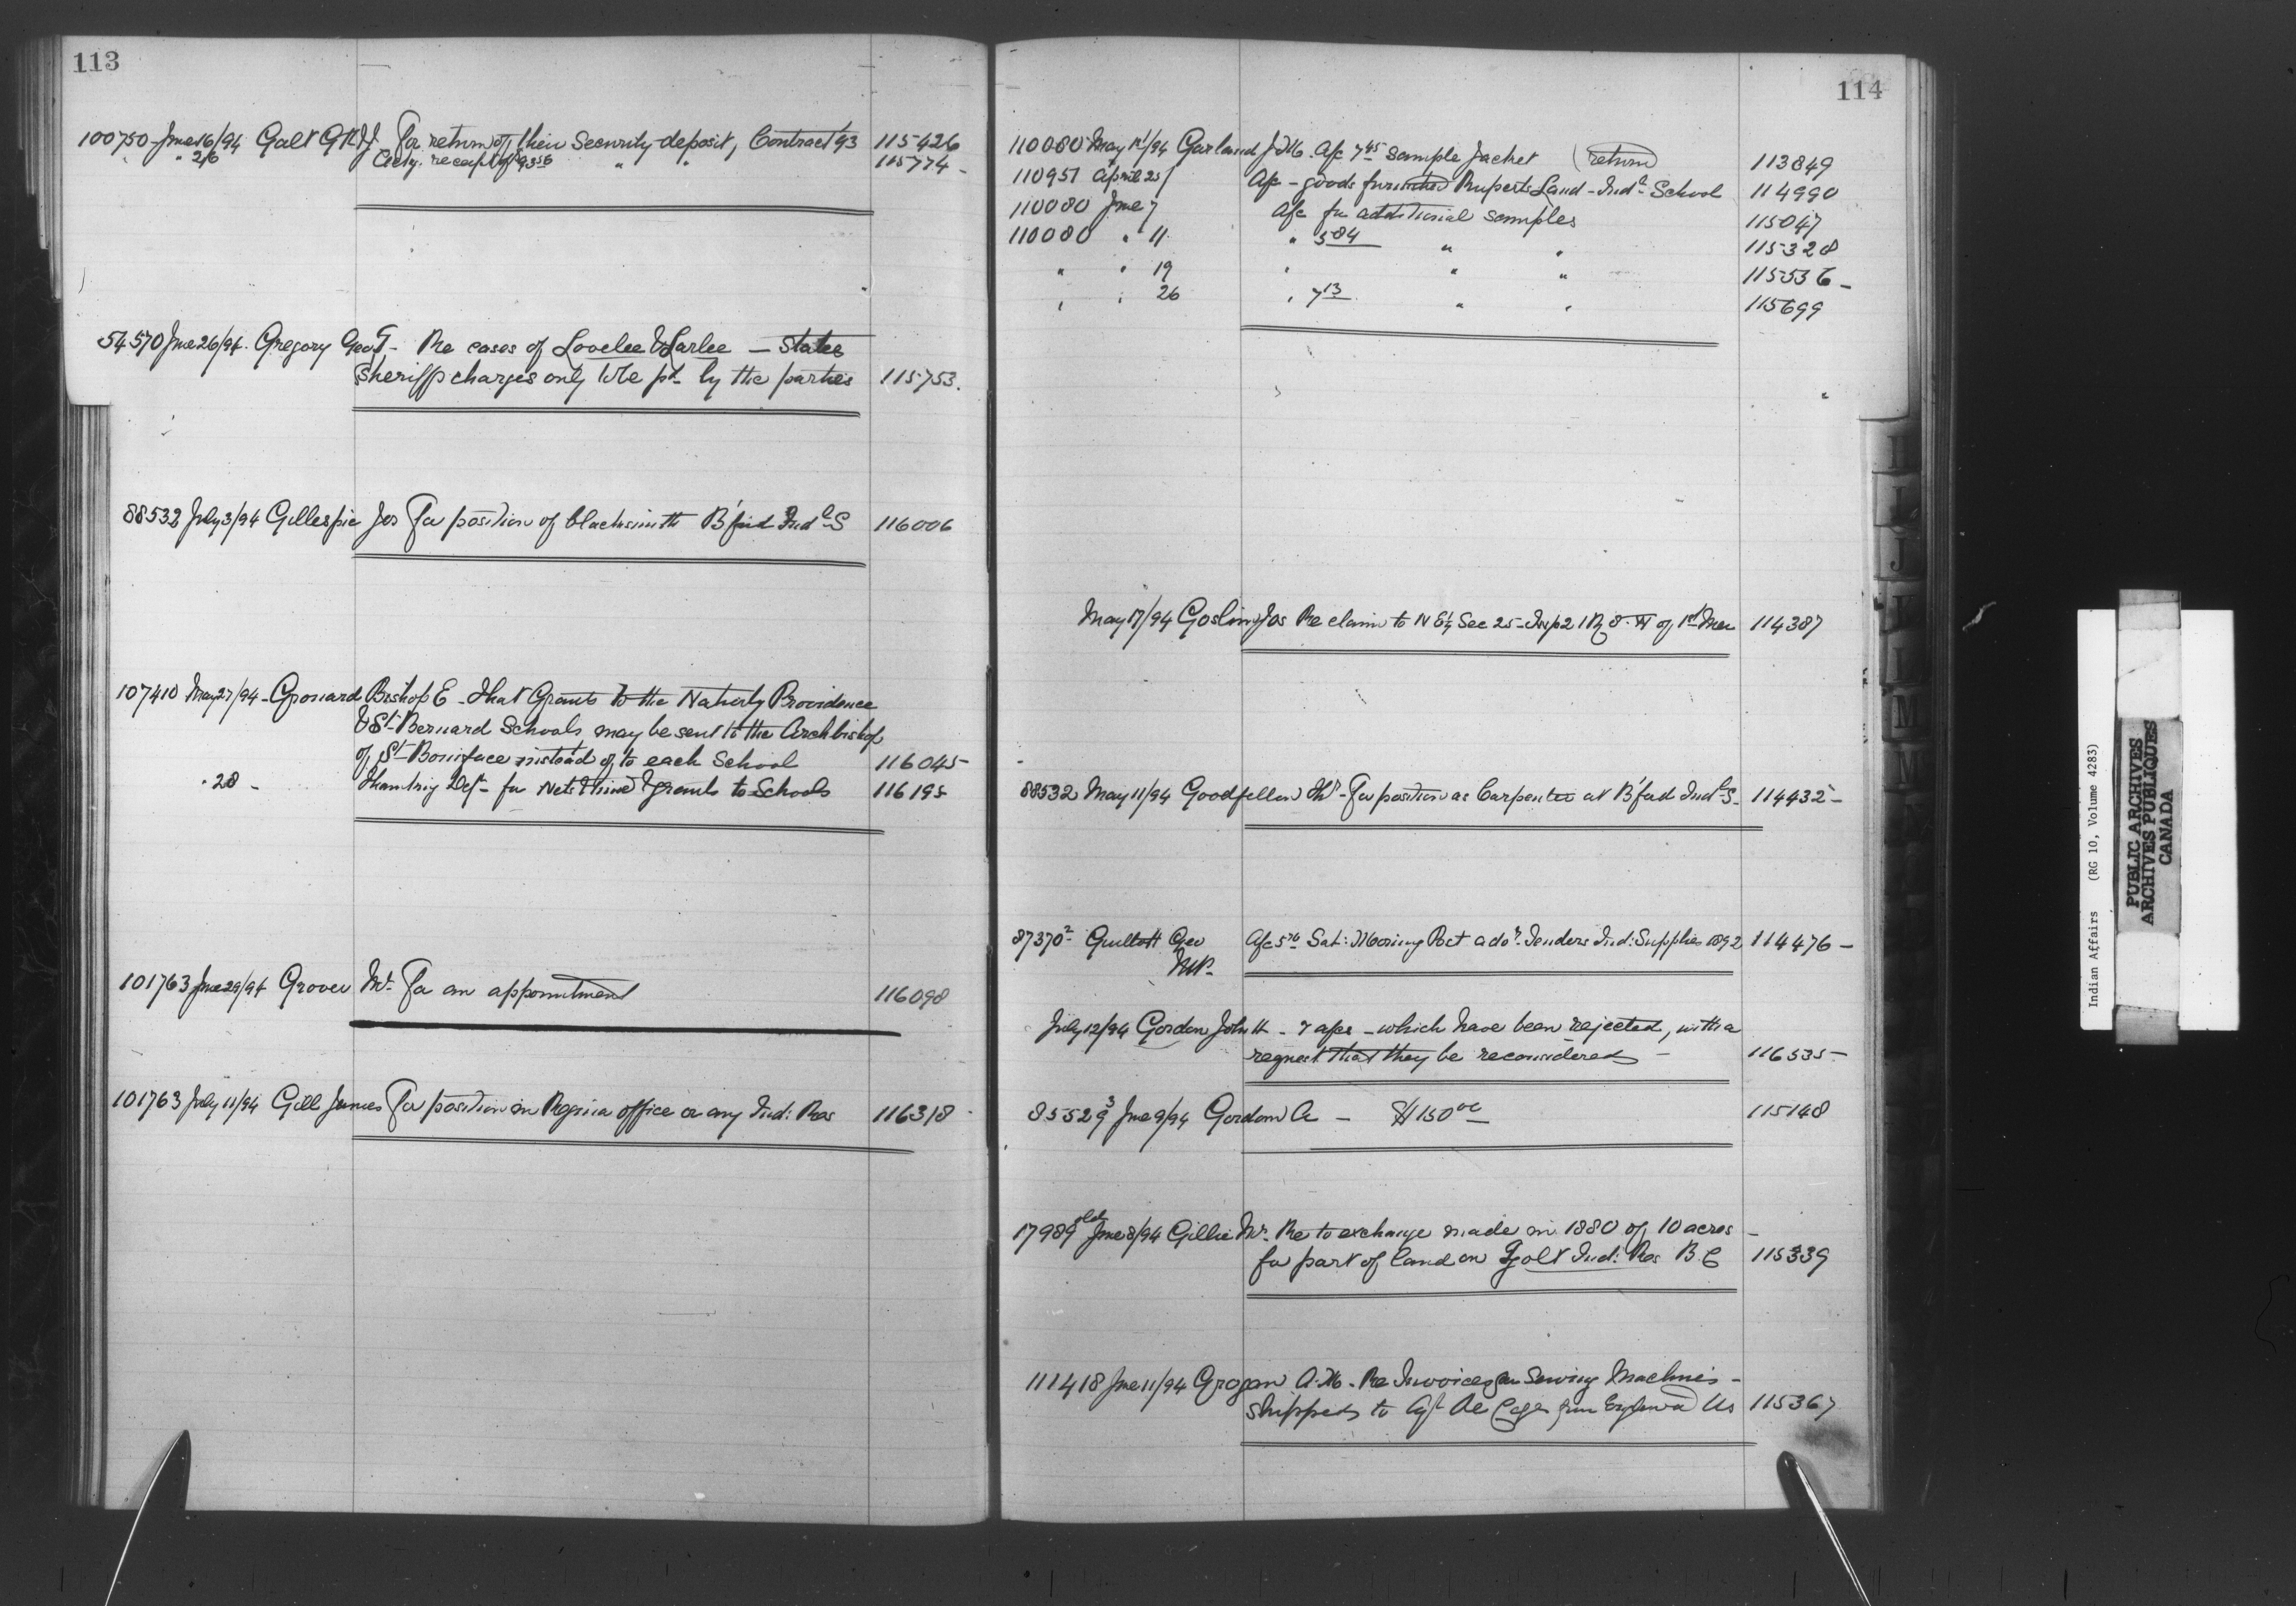 113
100750 June 16/94 Galt G F & J. For return of their Security deposit, Contract 93 115426
" " 26 Ackg. receipt of 93 56 " " 115774 -
54570 June 26/94. Gregory Geo F - Re cases of Lovelee & Larlee - States
Sheriffs charges only to be pd by the parties 115753.
88532 July 3/94 Gillespie Jos For position of blacksmith B'ford Indl S 116006
107410 May 27/94 - Grouard Bishop E - That Grants to the Nativity Providence
& St Bernard Schools may be sent to the Archbishop
of St Boniface instead of to each School 116045 -
" 28 - Thanking Dept - for Nets Twine & grants to Schools 116195
101763 June 29/94 Grover Mr. For an appointment 116098
101763 July 11/94 Gill James For position in Regina office or any Ind: Res 116318
114
110080 May 1st/94 Garland J M. A/c 7 45 Sample Jacket (return) 113849
110951 April 25/ A/c - goods furnished Ruperts Land - Indl School 114990
110080 June 7 A/c for additional samples 115047
110080 " 11 " 5 84 " " 115328
" " 19 " " " 115536 -
" " 26 " 7 13 " " 115699
May 17/94 Gosling Jos Re claim to N E 1/4 Sec 25 - Twp 21 R 8. W of 1st Mer 114387
88532 May 11/94 Goodfellow Thos - For position as Carpenter at B'ford Indl S - 114432 -
87370 2 Guillett Geo A/c 5 76 Sat: Morning Post advr. Tenders Ind: Supplies 1892 114476 -
M.P.
July 12/94 Gordon John H - 7 a/cs - which have been rejected, with a
request that they be reconsidered - 116535 -
85529 3 June 9/94 Gordon A - $150 00 115148
17989 old June 8/94 Gillie Mr. Re to exchange made in 1880 of 10 acres -
for part of land on Ind: Res B.C 115339
111418 June 11/94 Grogan A. M. Re Invoices for Sewing Machines -
shipped to Agt De Cazes from England Us 115367
I
J
L
M
M
Indian Affairs (RG 10, Volume 4283)
PUBLIC ARCHIVES
ARCHIVES PUBLIQUES
CANADA